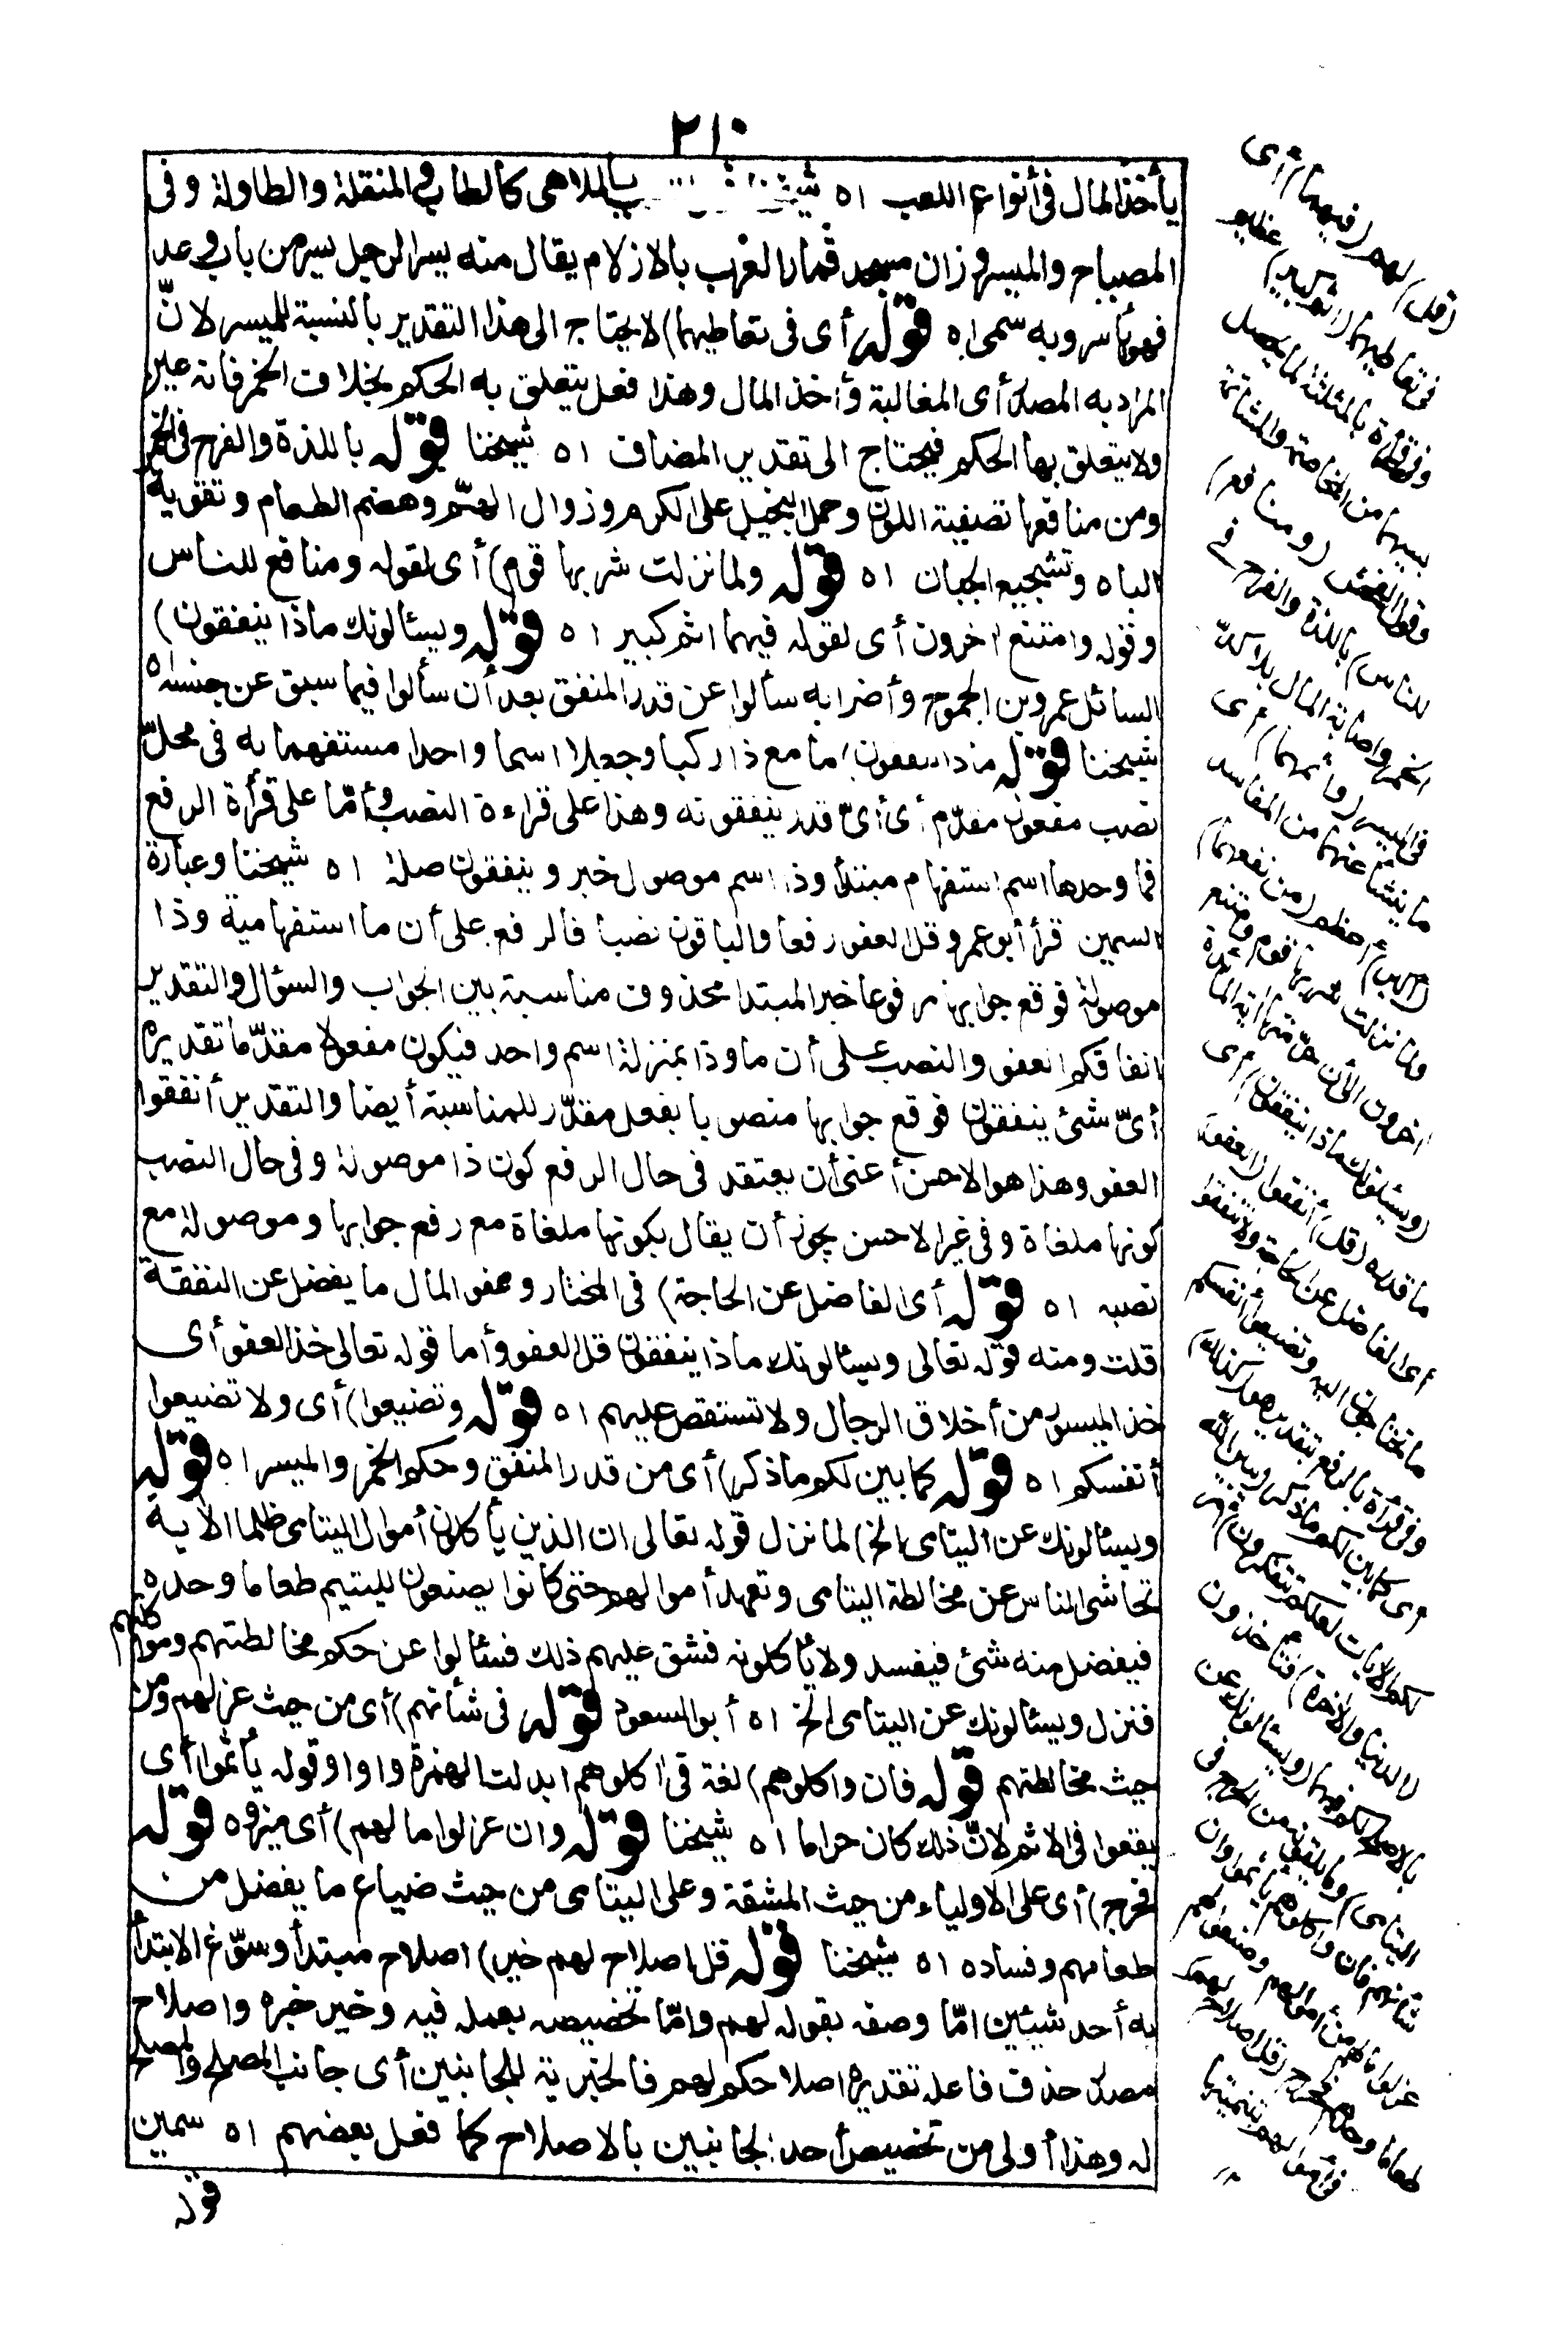 ٢١٠
يأخذ المال فى أنواع اللعب اه بالملاهى كالطاب والمنقلة والطاولة وفى
المصباح والميسر وزان مسجد قمار العرب بالازلام يقال منه يسر الرجل يسر من باب وعد
فهو ياسر وبه سمى اه قوله أى فى تعاطيهما) لا يحتاج الى هذا التقدير بالنسبة للميسر لانّ
المراد به المصدر أى المغالبة وأخذ المال وهذا فعل يتعلق به الحكم بخلاف الخمر فانه عين
ولا يتعلق بها الحكم فيحتاج الى تقدير المضاف اه شيخنا قوله باللذة والفرح فى الخمر
ومن منافعها تصفية اللون وحمل البخيل على الكرم وزوال الهمّ وهضم الطعام وتقوية
الباه وتشجيع الجبان اه قوله ولما نزلت شربها قوم) أى لقوله ومنافع للناس
وقوله وامتنع اخرون أى لقوله فيهما اثم كبير اه قوله ويسئالونك ماذا ينفقون)
السائل عمرو بن الجموح وأضرابه سألوا عن قدر المنفق بعد أن سألوا فيما سبق عن جنسه اه
شيخنا قوله ماذا ينفقون) ما مع ذا ركبا وجعلا اسما واحدا مستفهما به فى محلّ
نصب مفعول مقدّم أى أىّ قدر ينفقونه وهذا على قراءة النصب وأمّا على قرأة الرفع
فما وحدها اسم استفهام مبتدأ وذا اسم موصول خبر وينفقون صلة اه شيخنا وعبارة
السمين قرأ أبو عمرو قل العفو رفعا والباقون نصبا فالرفع على أن ما استفهامية وذا
موصولة فوقع جوابها مرفوعا خبر المبتدا محذوف مناسبة بين الجواب والسؤال والتقدير
انفاقكم العفو والنصب على أن ما وذا بمنزلة اسم واحد فيكون مفعولا مقدّما تقديره
أىّ شئ ينفقون فوقع جوابها منصوبا بفعل مقدّر للمناسبة أيضا والتقدير أنفقوا
العفو وهذا هو الاحسن أعنى أن يعتقد فى حال الرفع كون ذا موصولة وفى حال النصب
كونها ملغاة وفى غير الاحسن يجوز أن يقال بكونها ملغاة مع رفع جوابها وموصولة مع
نصبه اه قوله أى الفاضل عن الحاجة) فى المختار وعفو المال ما يفضل عن النفقة
قلت ومنه قوله تعالى ويسئالونك ماذا ينفقون قل العفو وأما قوله تعالى خذ العفو أى
خذ الميسور من أخلاق الرجال ولا تستقص عليهم اه قوله وتضيعوا) أى ولا تضيعوا
أنفسكم اه قوله كما بين لكم ما ذكر) أى من قدر المنفق وحكم الخمر والميسر اه قوله
ويسئالونك عن اليتامى الخ) لما نزل قوله تعالى ان الذين يأكلون أموال اليتامى ظلما الاية
تحاشى الناس عن مخالطة اليتامى وتعهد أموالهم حتى كانوا يصنعون لليتيم طعاما وحده
فيفضل منه شئ فيفسد ولا يأكلونه فشق عليهم ذلك فسئالوا عن حكم مخالطتهم ومواكلتهم
فنزل ويسئالونك عن اليتامى الخ اه أبو السعود قوله فى شأنهم) أى من حيث عزلهم ومن
حيث مخالطتهم قوله فان واكلوهم) لغة فى اكلوهم ابدلت الهمزة واوا وقوله يأثموا أى
يقعوا فى الاثم لانّ ذلك كان حراما اه شيخنا قوله وان عزلوا مالهم) أى ميزوه قوله
فحرج) أى على الاولياء من حيث المشقة وعلى اليتامى من حيث ضياع ما يفضل من
طعامهم وفساده اه شيخنا قوله قل اصلاح لهم خير) اصلاح مبتدأ وسوّغ الابتدأ
به أحد شيئين امّا وصفه بقوله لهم وامّا تخصيصه بعمله فيه وخير خبره واصلاح
مصدر حذف فاعله تقديره اصلاحكم لهم فالخيرية للجانبين أى جانب المصلح والمصلح
له وهذا أولى من تخصيص أحد الجانبين بالاصلاح كما فعل بعضهم اه سمين
قوله
(قل) لهم (فيهما) أى
فى تعاطيهما (اثم كبير) عظيم
وفى قرأة بالمثلثة لما يحصل
بسببهما من المخاصمة والمشاتمة
وقول الفحش (ومنافع
للناس) باللذة والفرح فى
الخمر واصابة المال بلا كدّ
فى الميسر (واثمهما) أى
ما ينشأ عنهما من المفاسد
(أكبر) أعظم (من نفعهما)
ولما نزلت شربها قوم وامتنع
اخرون الى أن حرّمتها اية المائدة
(ويسئلونك ماذا ينفقون) أى
ما قدره (قل) أنفقوا (العفو)
أى الفاضل عن الحاجة ولا تنفقوا
ما تحتاجون اليه وتضيعوا أنفسكم
وفى قرأة بالرفع بتقدير هو (كذلك)
أى كما بين لكم ما ذكر (يبين الله
لكم الايات لعلكم تتفكرون فى)
(الدنيا والاخرة) فتأخذون
بالاصلح لكم فيهما (ويسئالونك عن
اليتامى) وما يلقونه من الحرج فى
شأنهم فان واكلوهم يأثموا وان
عزلوا مالهم من أموالهم وصنعوا لهم
طعاما وحدهم فحرج (قل اصلاح لهم)
فى أموالهم بتنميتها